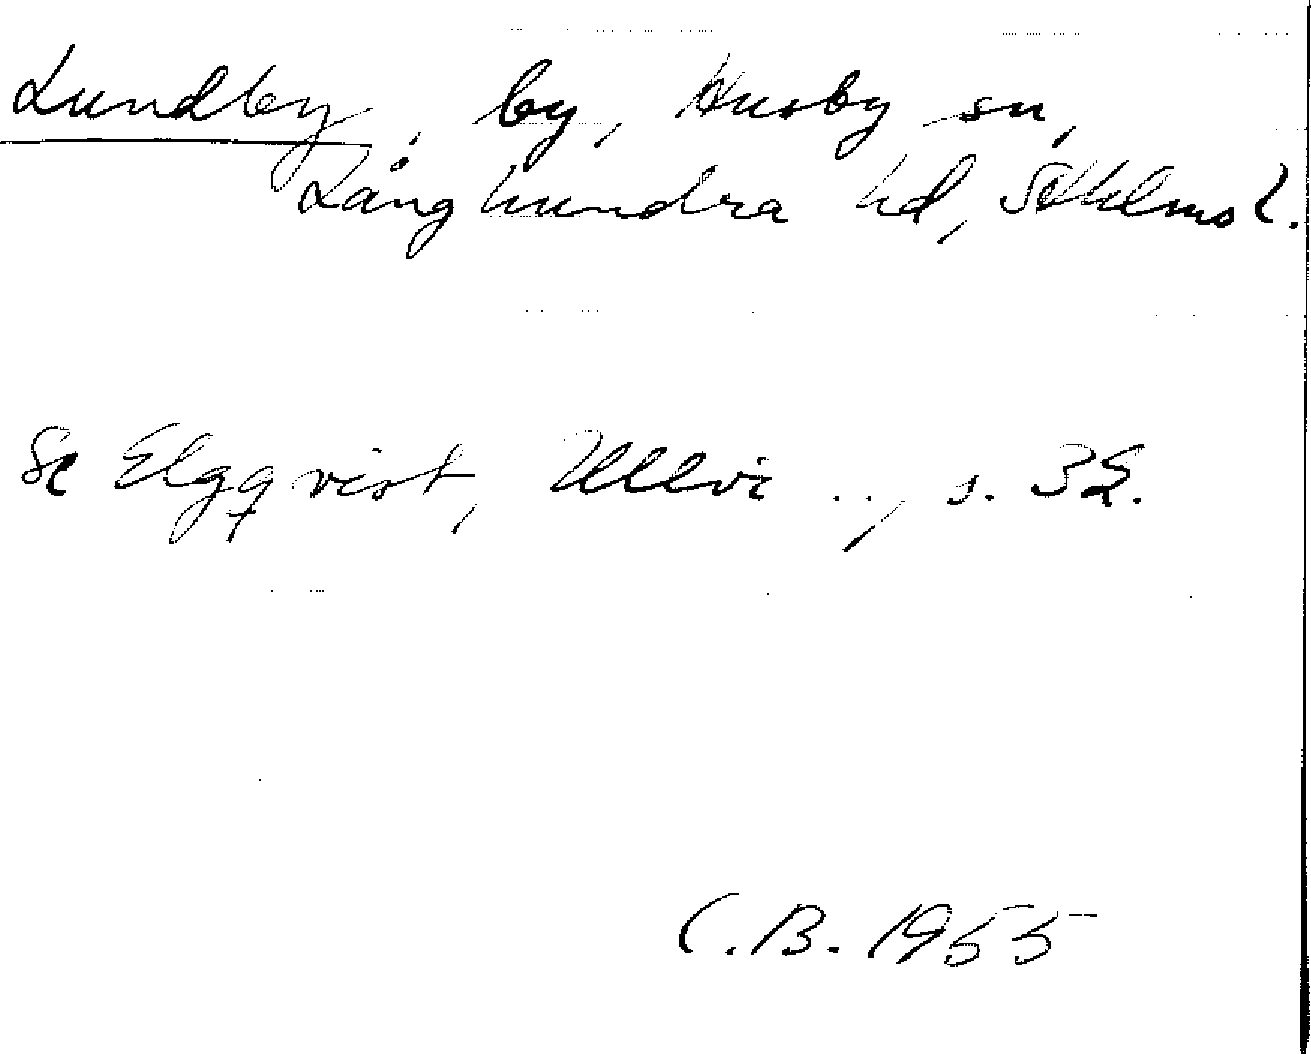 Lundby, by, Husby sn,
Långhundra hd, Sthlms l.
Se Elgqvist, Ullvi .., s. 38.
C.B. 1955